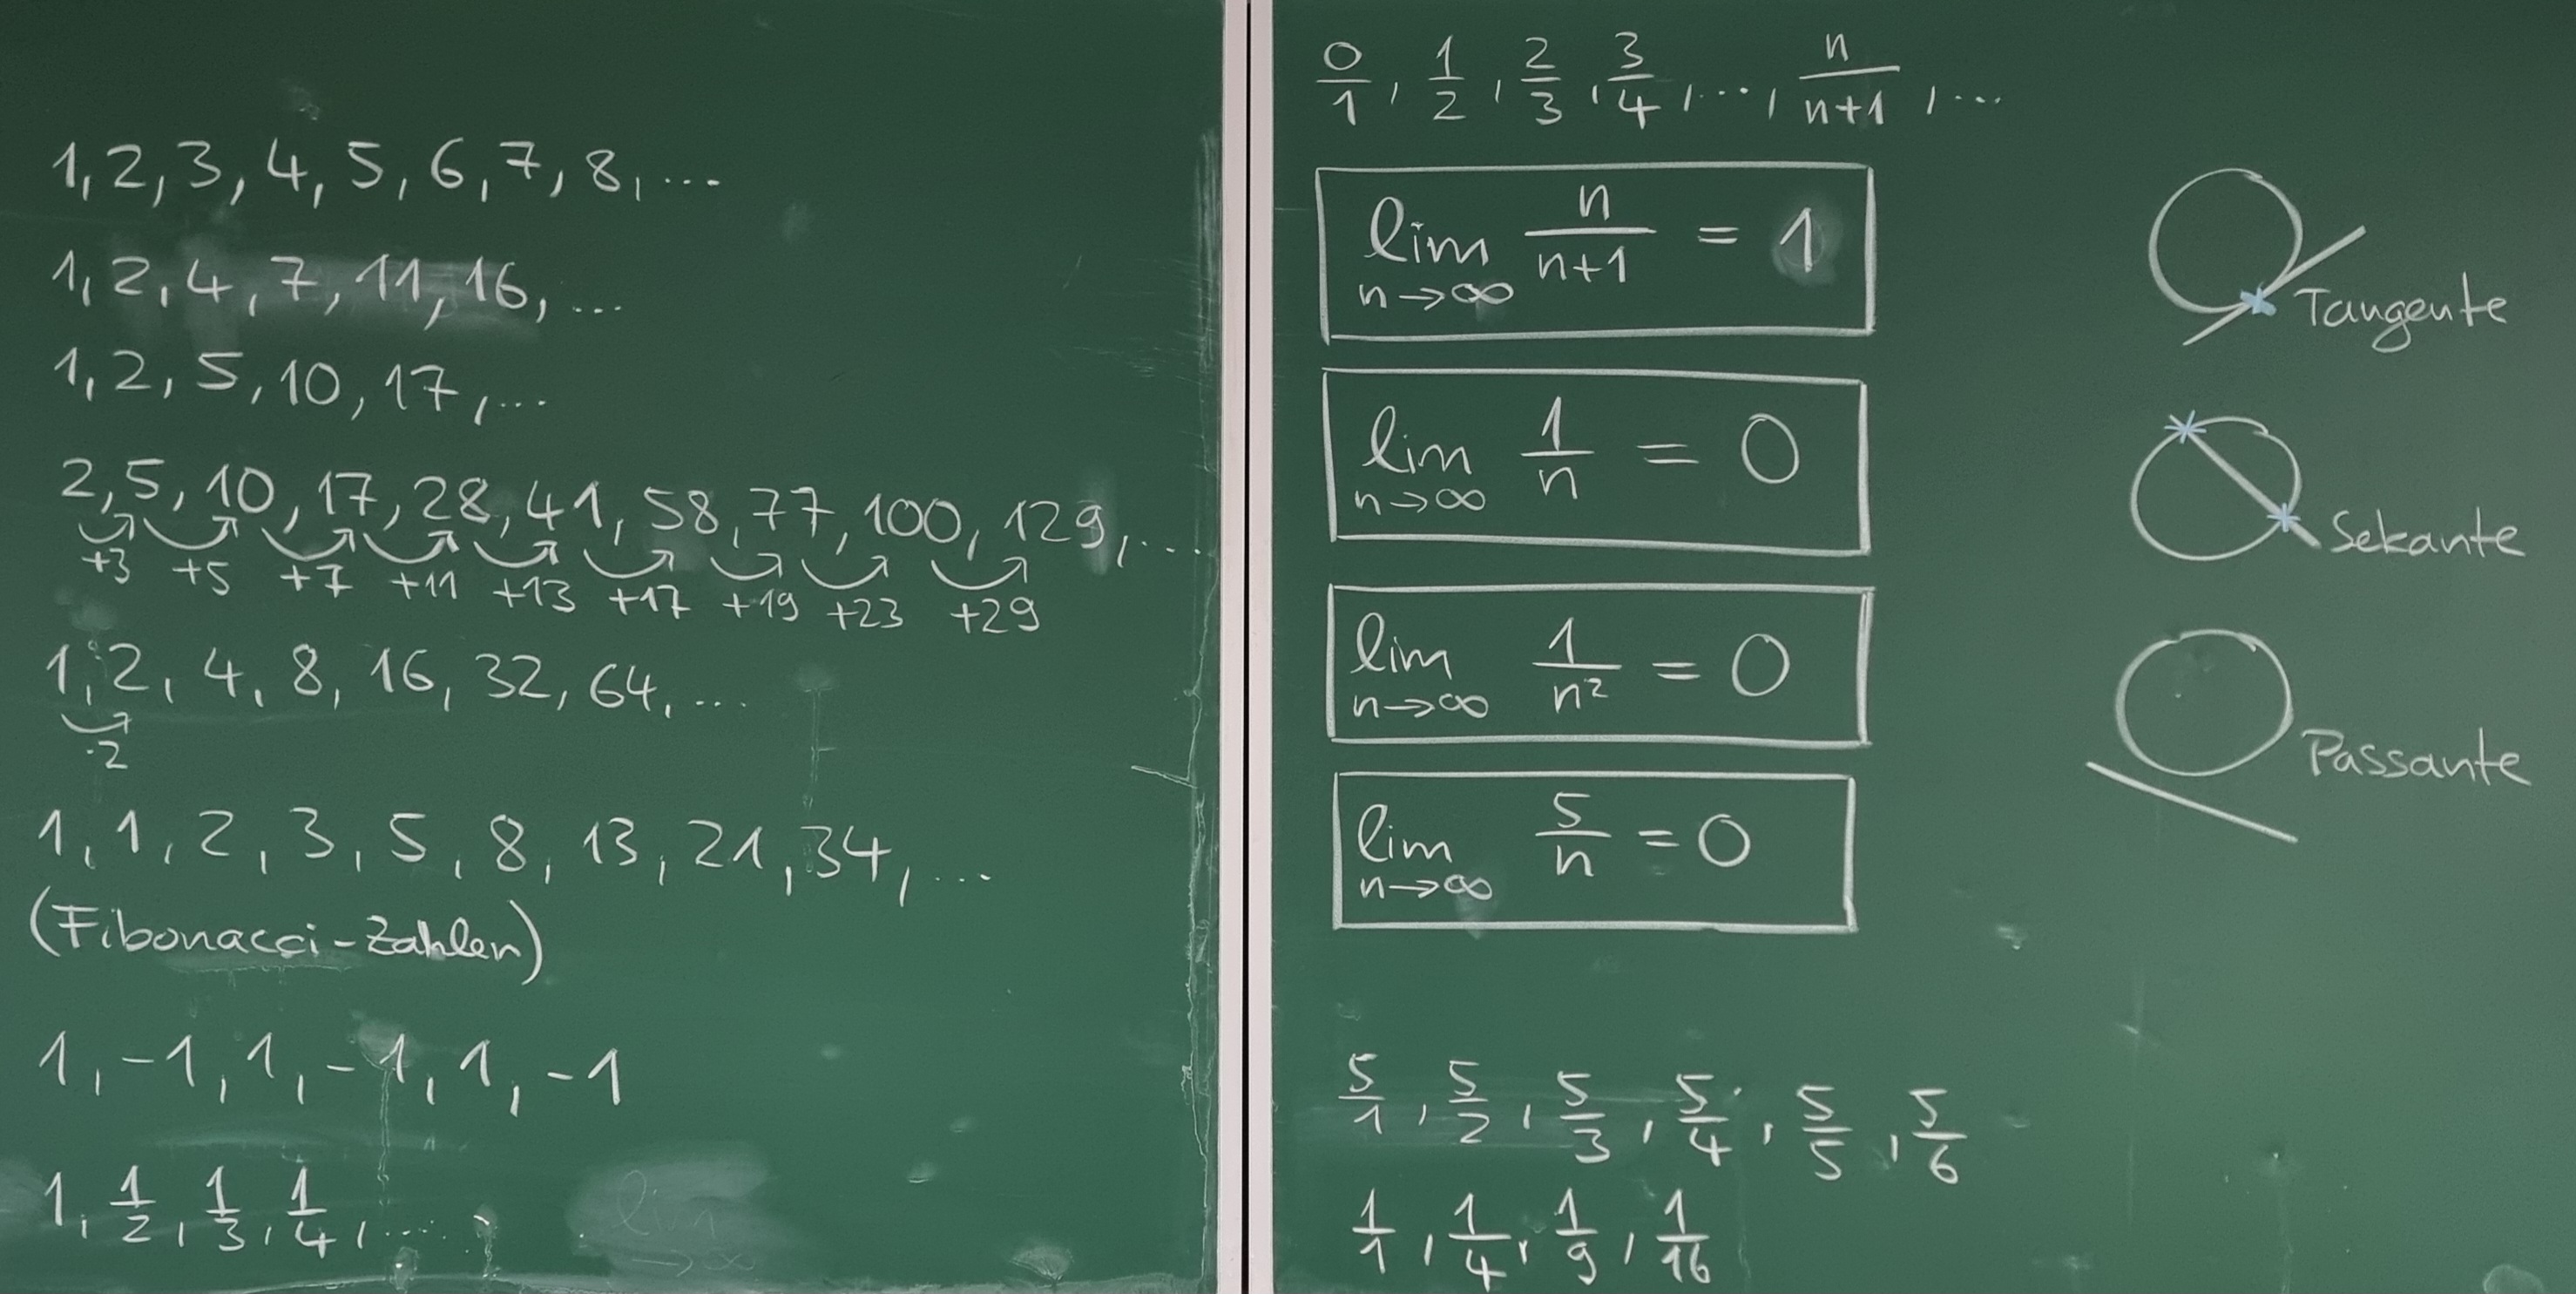 1, 2, 3, 4, 5, 6, 7, 8, ...
1, 2, 4, 7, 11, 16, ...
1, 2, 5, 10, 17, ...
2, 5, 10, 17, 28, 41, 58, 77, 100, 129, ...
+3 +5 +7 +11 +13 +17 +19 +23 +29
1, 2, 4, 8, 16, 32, 64, ...
·2
1, 1, 2, 3, 5, 8, 13, 21, 34, ...
(Fibonacci-Zahlen)
1, -1, 1, -1, 1, -1
1, 1/2, 1/3, 1/4, ...
lim
→∞
0/1, 1/2, 2/3, 3/4, ..., n/(n+1), ...
lim n→∞ n/(n+1) = 1
lim n→∞ 1/n = 0
lim n→∞ 1/n² = 0
lim n→∞ 5/n = 0
5/1, 5/2, 5/3, 5/4, 5/5, 5/6
1/1, 1/4, 1/9, 1/16
Tangente
Sekante
Passante